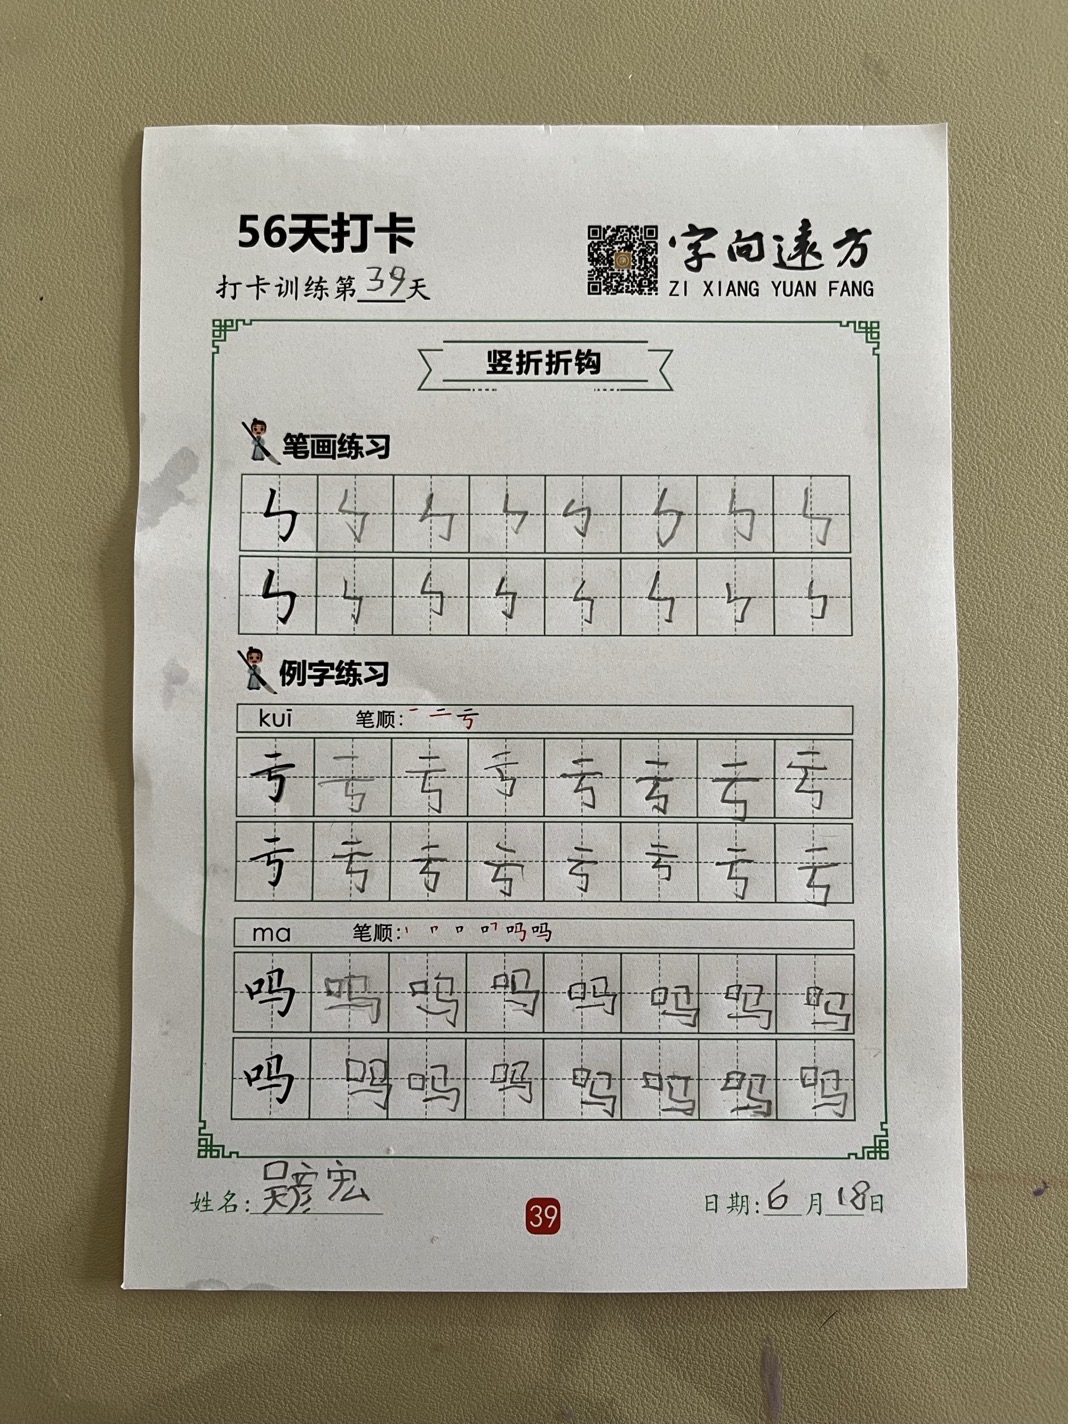 56天打卡
打卡训练第39天
字向遠方
ZI XIANG YUAN FANG
竖折折钩
笔画练习
ㄣ ㄣ ㄣ ㄣ ㄣ ㄣ ㄣ ㄣ
ㄣ ㄣ ㄣ ㄣ ㄣ ㄣ ㄣ ㄣ
例字练习
kuī 笔顺: 一 二 亏
亏 亏 亏 亏 亏 亏 亏 亏
亏 亏 亏 亏 亏 亏 亏 亏
ma 笔顺: 丨 𠃍 口 吗 吗
吗 吗 吗 吗 吗 吗 吗 吗
吗 吗 吗 吗 吗 吗 吗 吗
姓名: 吴彦宏
39
日期: 6月18日